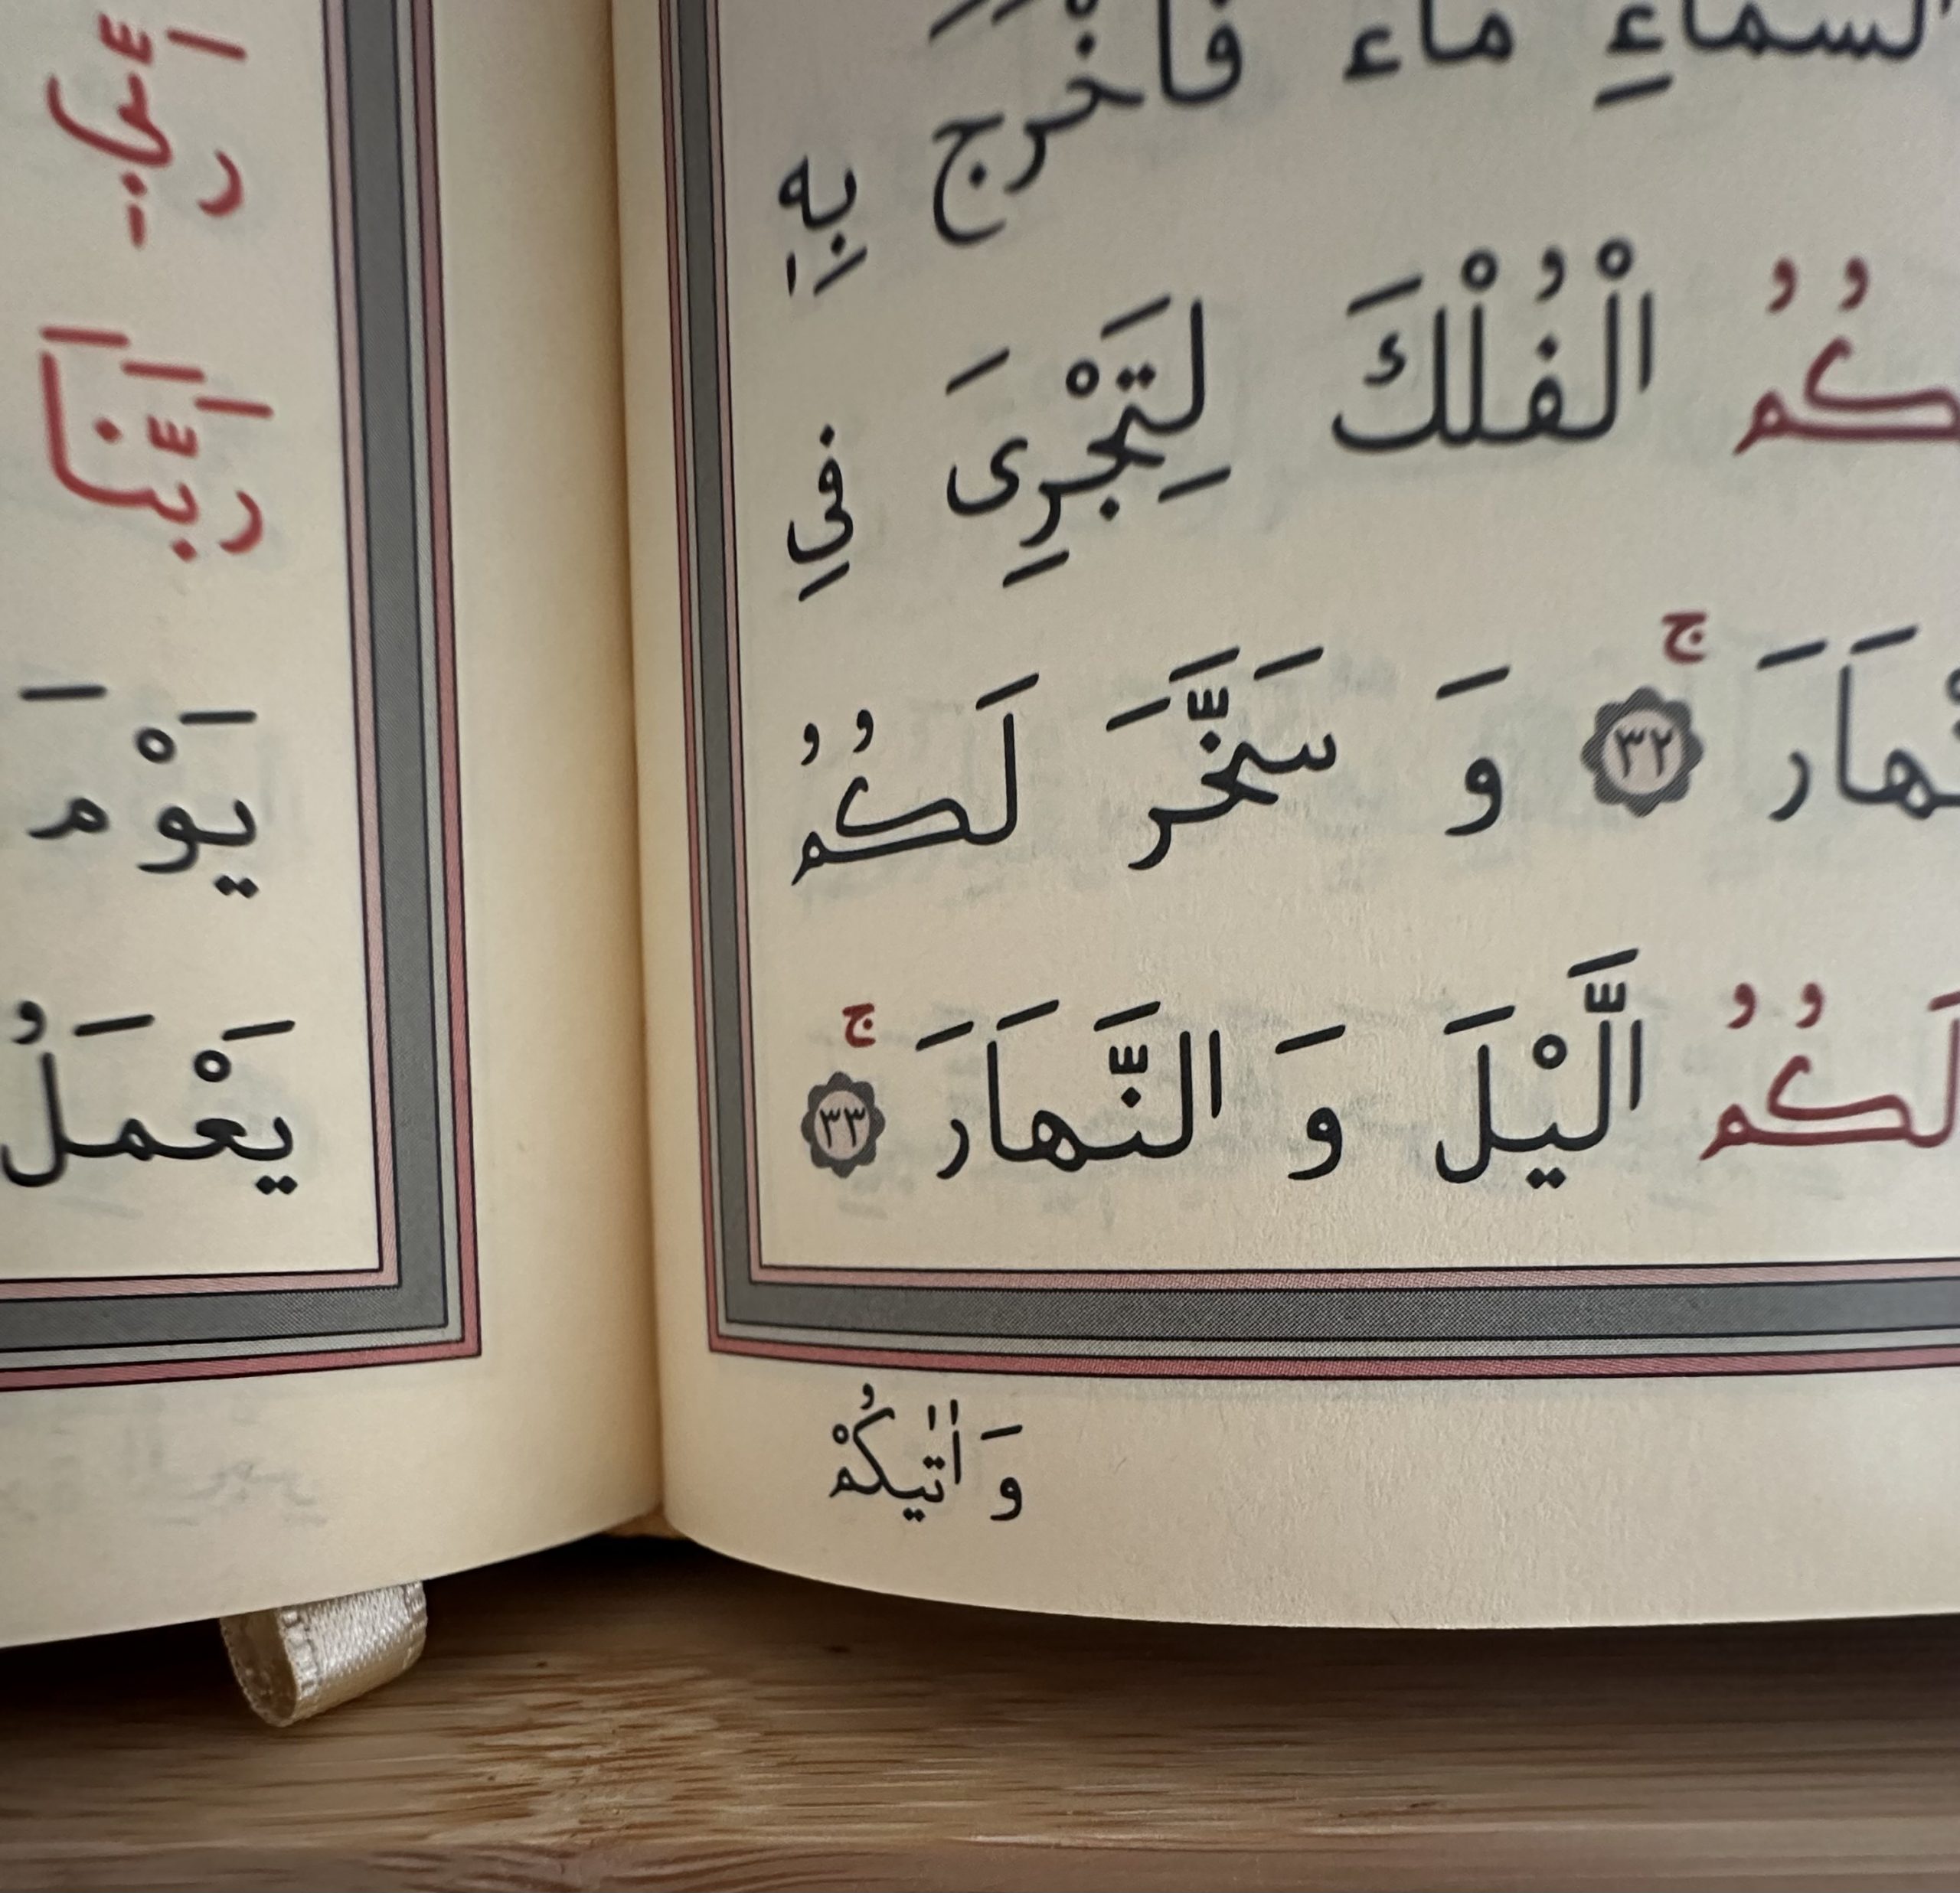 السماءِ ماء فأخرج بِهٖ
كُمُ الْفُلْكَ لِتَجْرِىَ فِي
هَارَ ۚ ٣٢ وَ سَخَّرَ لَكُمُ
لَكُمُ الَّيْلَ وَ النَّهَارَ ۚ ٣٣
وَ اٰتٰيكُمْ
رَبَّنَا
يَوْمَ
يَعْمَلُ